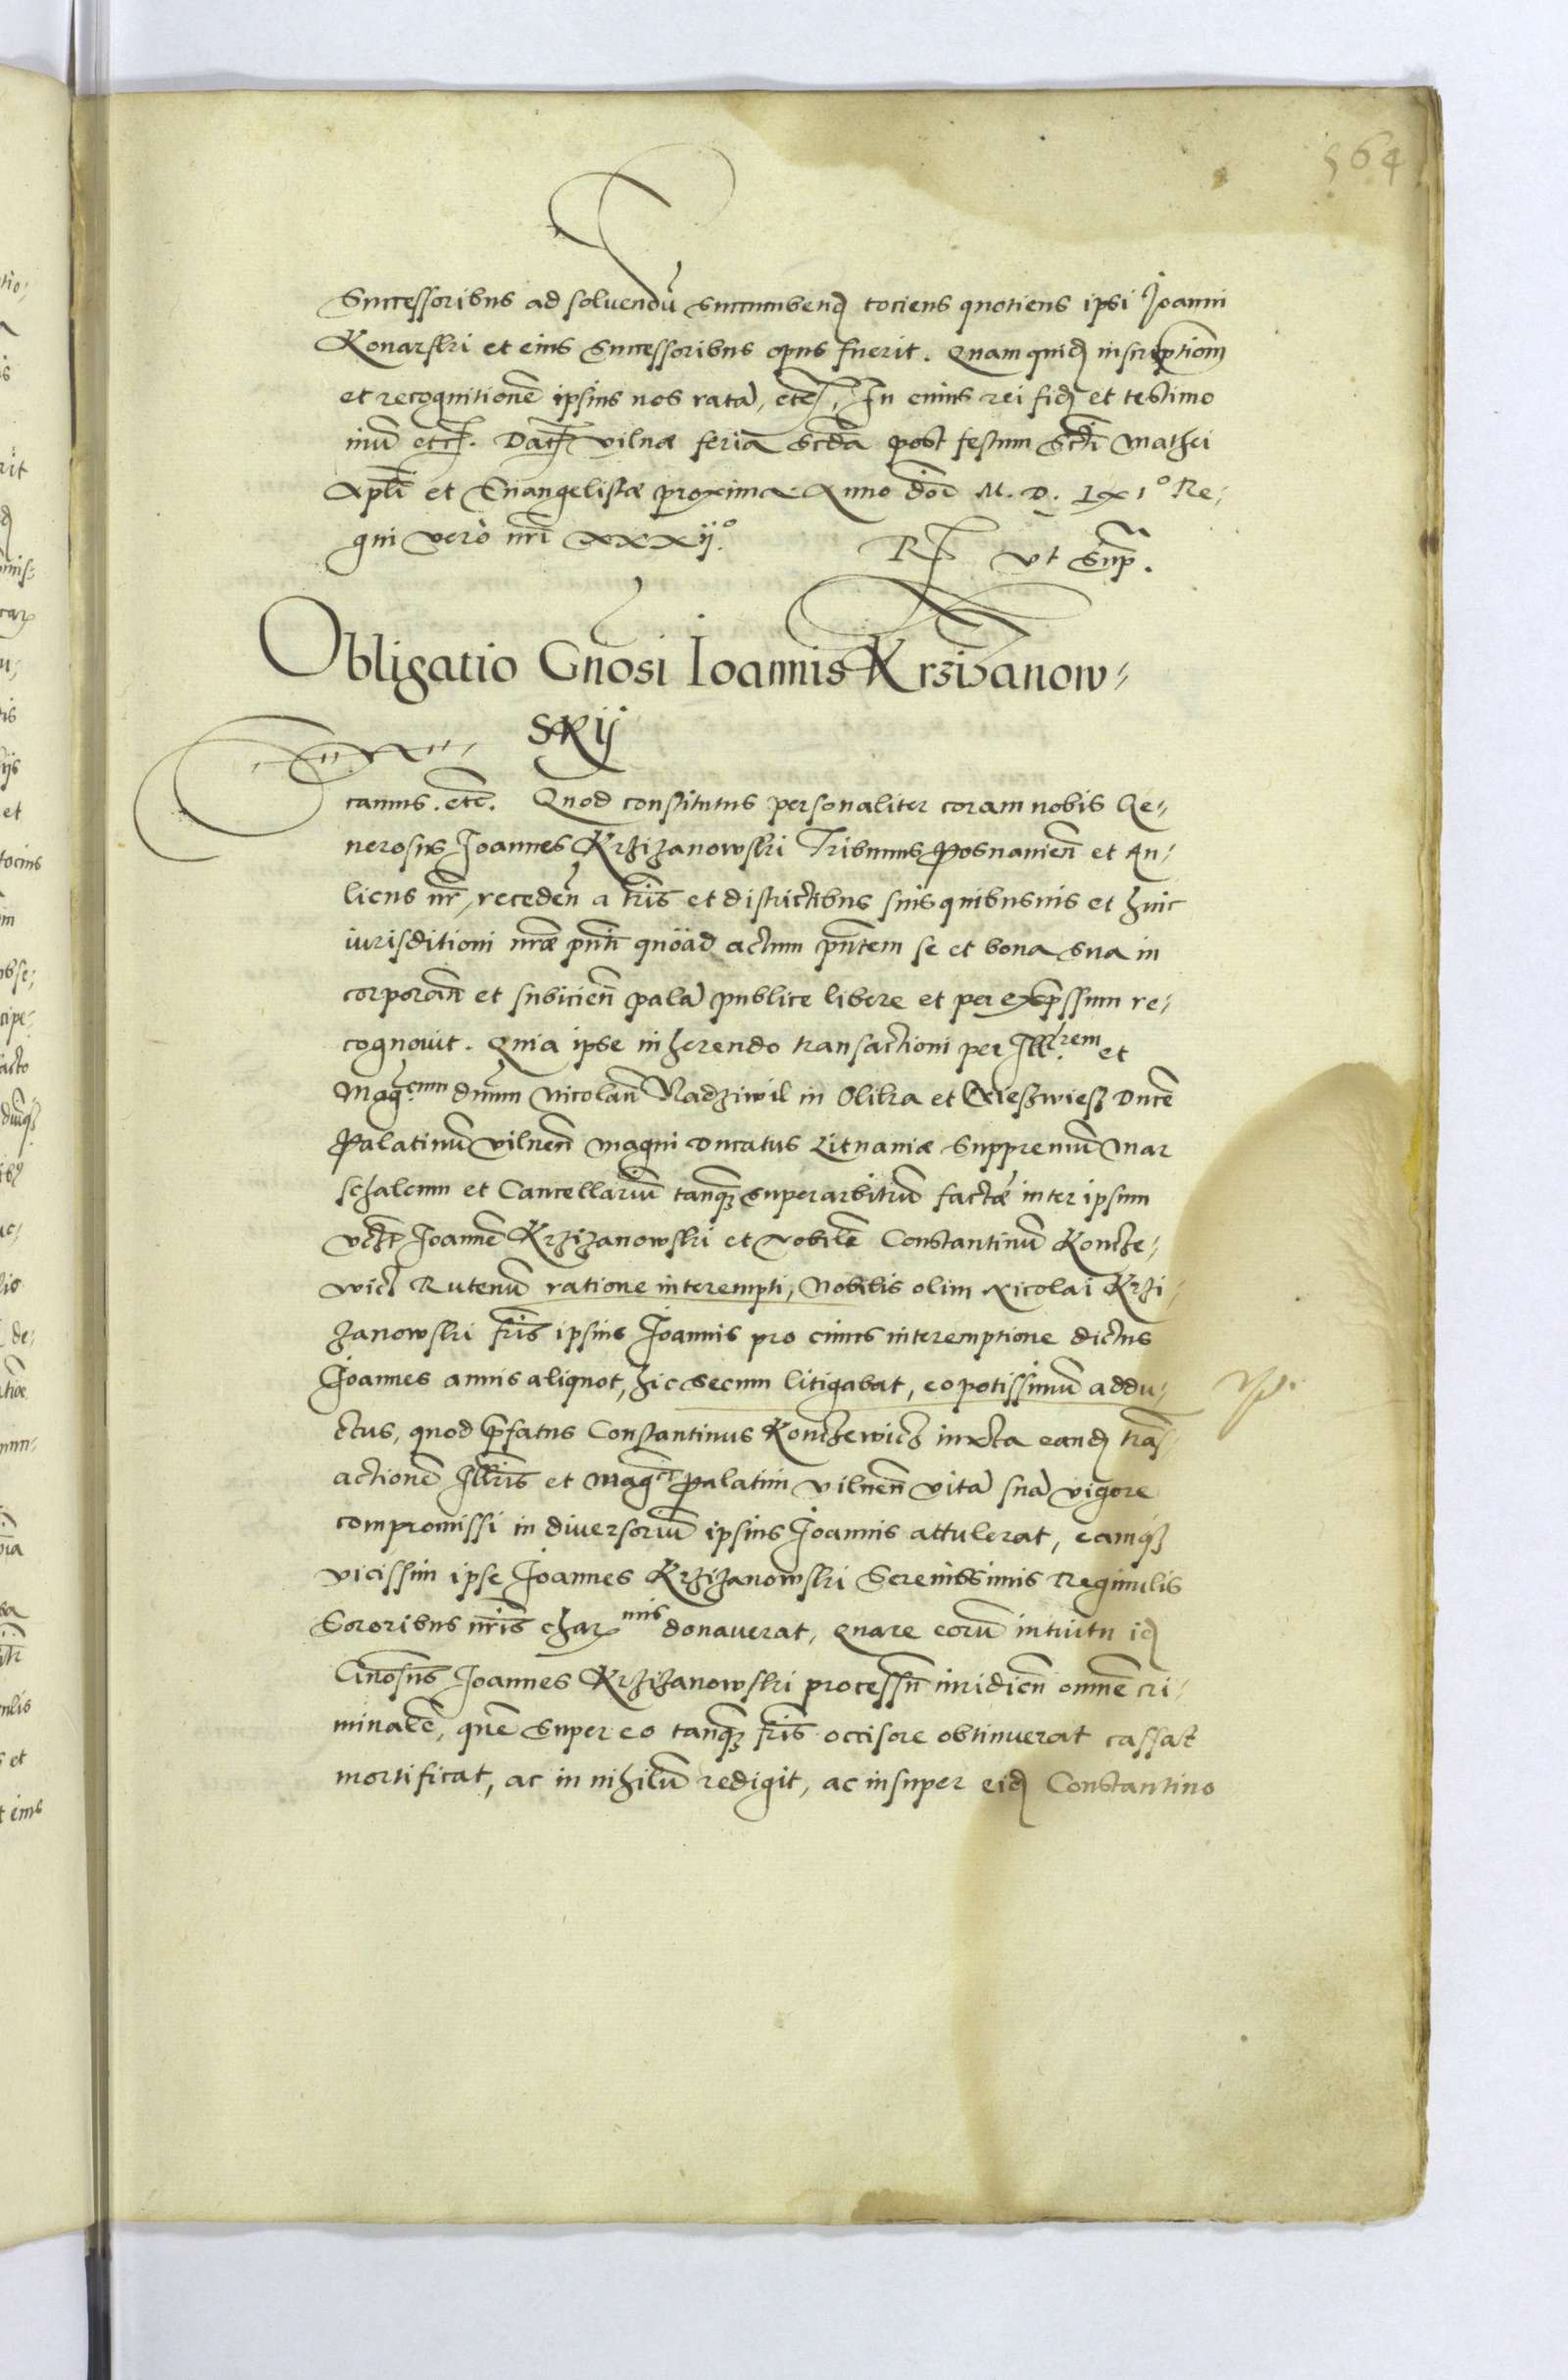 564
Successoribus ad soluendũ succumbend tociens quotiens ipsi Joanni
Konarski et eius Successoribus opus fuerit. Quam quid inscriptiom̃
et recognitionẽ ipsius nos ratã, etc, In cuius rei fid et testimo
niũ etc. Dat Vilnæ feria scđa post festum Scti Mathei
Apli et Euangelistæ proxima Anno dñi M. D. LXI° Re-
gni vero nr̃i XXXij°. R ut Sup.
Obligatio Gnosi Ioannis Krzizanow-
skij
camus. etc. Quod constitutus personaliter coram nobis Ge-
nerosus Joannes Krzizanowski Tribunus Posnanien̄ et Au-
licus nr̄, receden̄ a tris et districtibus suis quibusuis et huic
iurisditioni nr̄æ pn̄ti quoad actum pn̄tem se et bona sua in
corporan̄ et subicien̄ palã publice libere et per expssum re-
cognouit. Quia ipse inherendo transactioni per Illrem et
Mag.cum dn̄um Nicolaũ Radziwil in Olika et Nieszwiesz Ducẽ
Palatinũ Vilnen̄ magni Ducatus Lituaniæ Suppremũ Mar
schalcum et Cancellariũ tanq̃ superarbitrũ factæ inter ipsum
Joannẽ Krzizanowski et nobilẽ Constantinũ Koncze-
wicz Rutenũ ratione interempti, Nobilis olim Nicolai Krzi-
zanowski fr̃is ipsius Joannis pro cuius interemptione dictus
Joannes annis aliquot, hic secum litigabat, eo potissimũ addu-
ctus, quod p̃fatus Constantinus Konczewicz iuxta eand trãs-
actionẽ Ill̃ris et Mag.ci Palatini Vilnen̄ vitã suã vigore
compromissi in diuersoriũ ipsius Joannis attulerat, eamq̃
vicissim ipse Joannes Krzizanowski Serenissimis Reginulis
Sororibus nr̃is char mis donauerat, Quare eorũ intuitu id
Gn̄osus Joannes Krzizanowski processũ iuridicũ omnẽ cri-
minalẽ, quẽ super eo tanq̃ fr̃is occisore obtinuerat cassat
mortificat, ac in nihilũ redigit, ac insuper eid Constantino